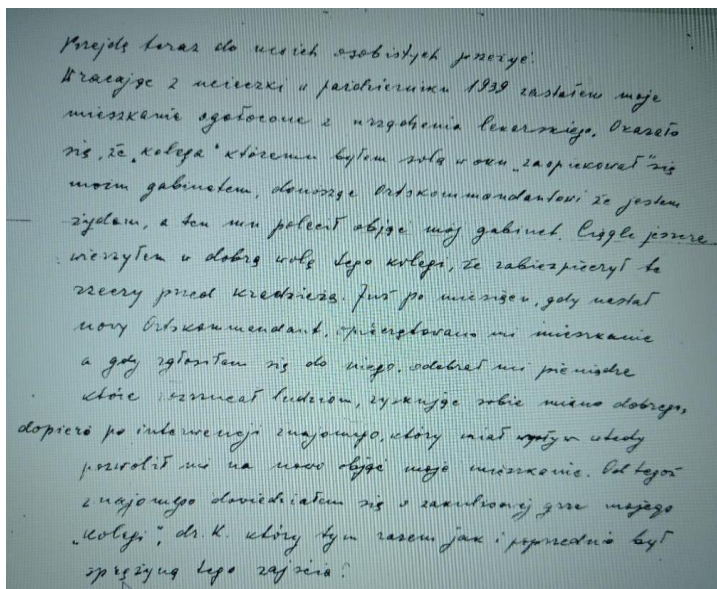 Przejdę teraz do moich osobistych przeżyć.
Wracając z ucieczki w październiku 1939 zastałem moje
mieszkanie ogołocone z urządzenia lekarskiego. Okazało
się, że „kolega" któremu byłem solą w oku „zaopiekował" się
moim gabinetem, donosząc Ortskommandantowi że jestem
żydem, a ten mu polecił objąć mój gabinet. Ciągle jeszcze
wierzyłem w dobrą wolę tego kolegi, że zabezpieczył te
rzeczy przed kradzieżą. Już po miesiącu, gdy nastał
nowy Ortskommandant, opieczętowano mi mieszkanie
a gdy zgłosiłem się do niego, odebrał mi pieniądze
które rozrzucał ludziom, zyskując sobie miano dobrego,
dopiero po interwencji znajomego, który miał wpływ wtedy
pozwolił mi na nowo objąć moje mieszkanie. Od tegoż
znajomego dowiedziałem się o zakulisowej grze mojego
„kolegi", dr. K. który tym razem jak i poprzednio był
sprężyną tego zajścia!